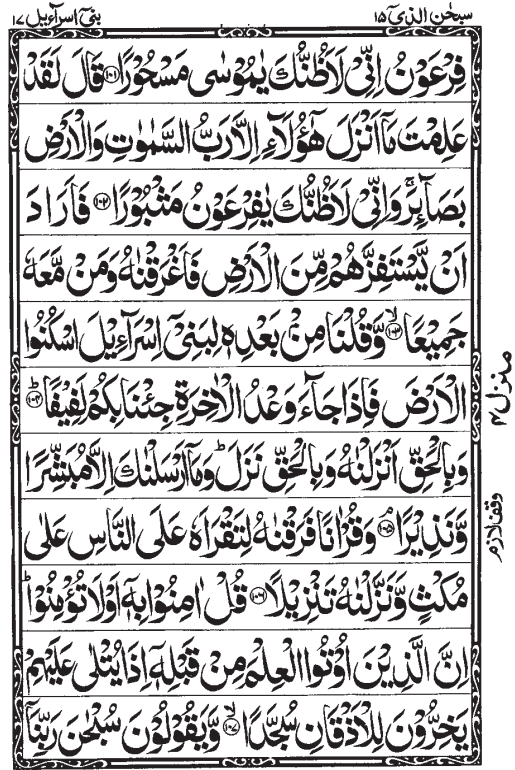 سبحٰن الذیٓ ۱۵
بنیٓ اسرآءیل ۱۷
فِرْعَوْنُ اِنِّیْ لَاَظُنُّكَ یٰمُوْسٰی مَسْحُوْرًا ﴿۱۰۱﴾ قَالَ لَقَدْ
عَلِمْتَ مَاۤ اَنْزَلَ هٰۤؤُلَآءِ اِلَّا رَبُّ السَّمٰوٰتِ وَالْاَرْضِ
بَصَآئِرَ ۚ وَاِنِّیْ لَاَظُنُّكَ یٰفِرْعَوْنُ مَثْبُوْرًا ﴿۱۰۲﴾ فَاَرَادَ
اَنْ یَّسْتَفِزَّهُمْ مِّنَ الْاَرْضِ فَاَغْرَقْنٰهُ وَمَنْ مَّعَهٗ
جَمِیْعًا ﴿۱۰۳﴾ۙ وَّقُلْنَا مِنْۢ بَعْدِهٖ لِبَنِیْۤ اِسْرَآءِیْلَ اسْكُنُوا
الْاَرْضَ فَاِذَا جَآءَ وَعْدُ الْاٰخِرَةِ جِئْنَا بِكُمْ لَفِیْفًا ﴿۱۰۴﴾ؕ
وَبِالْحَقِّ اَنْزَلْنٰهُ وَبِالْحَقِّ نَزَلَ ؕ وَمَاۤ اَرْسَلْنٰكَ اِلَّا مُبَشِّرًا
وَّنَذِیْرًا ﴿۱۰۵﴾ۘ وَقُرْاٰنًا فَرَقْنٰهُ لِتَقْرَاَهٗ عَلَی النَّاسِ عَلٰی
مُكْثٍ وَّنَزَّلْنٰهُ تَنْزِیْلًا ﴿۱۰۶﴾ قُلْ اٰمِنُوْا بِهٖۤ اَوْ لَا تُؤْمِنُوْا ؕ
اِنَّ الَّذِیْنَ اُوْتُوا الْعِلْمَ مِنْ قَبْلِهٖۤ اِذَا یُتْلٰی عَلَیْهِمْ
یَخِرُّوْنَ لِلْاَذْقَانِ سُجَّدًا ﴿۱۰۷﴾ۙ وَّیَقُوْلُوْنَ سُبْحٰنَ رَبِّنَاۤ
منزل ۴
وقف لازم